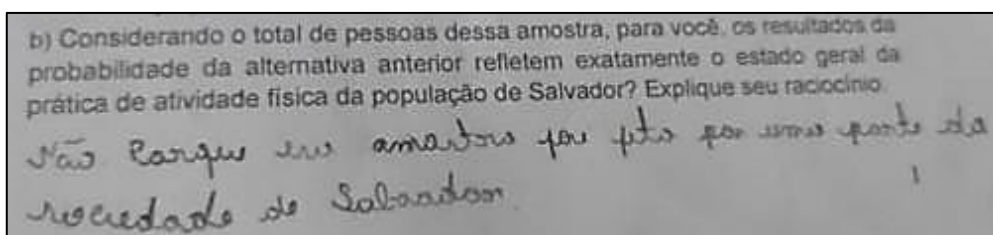 b) Considerando o total de pessoas dessa amostra, para você, os resultados da
probabilidade da alternativa anterior refletem exatamente o estado geral da
prática de atividade física da população de Salvador? Explique seu raciocínio.
Não Porque amostra foi por uma parte da
sociedade de Salvador.